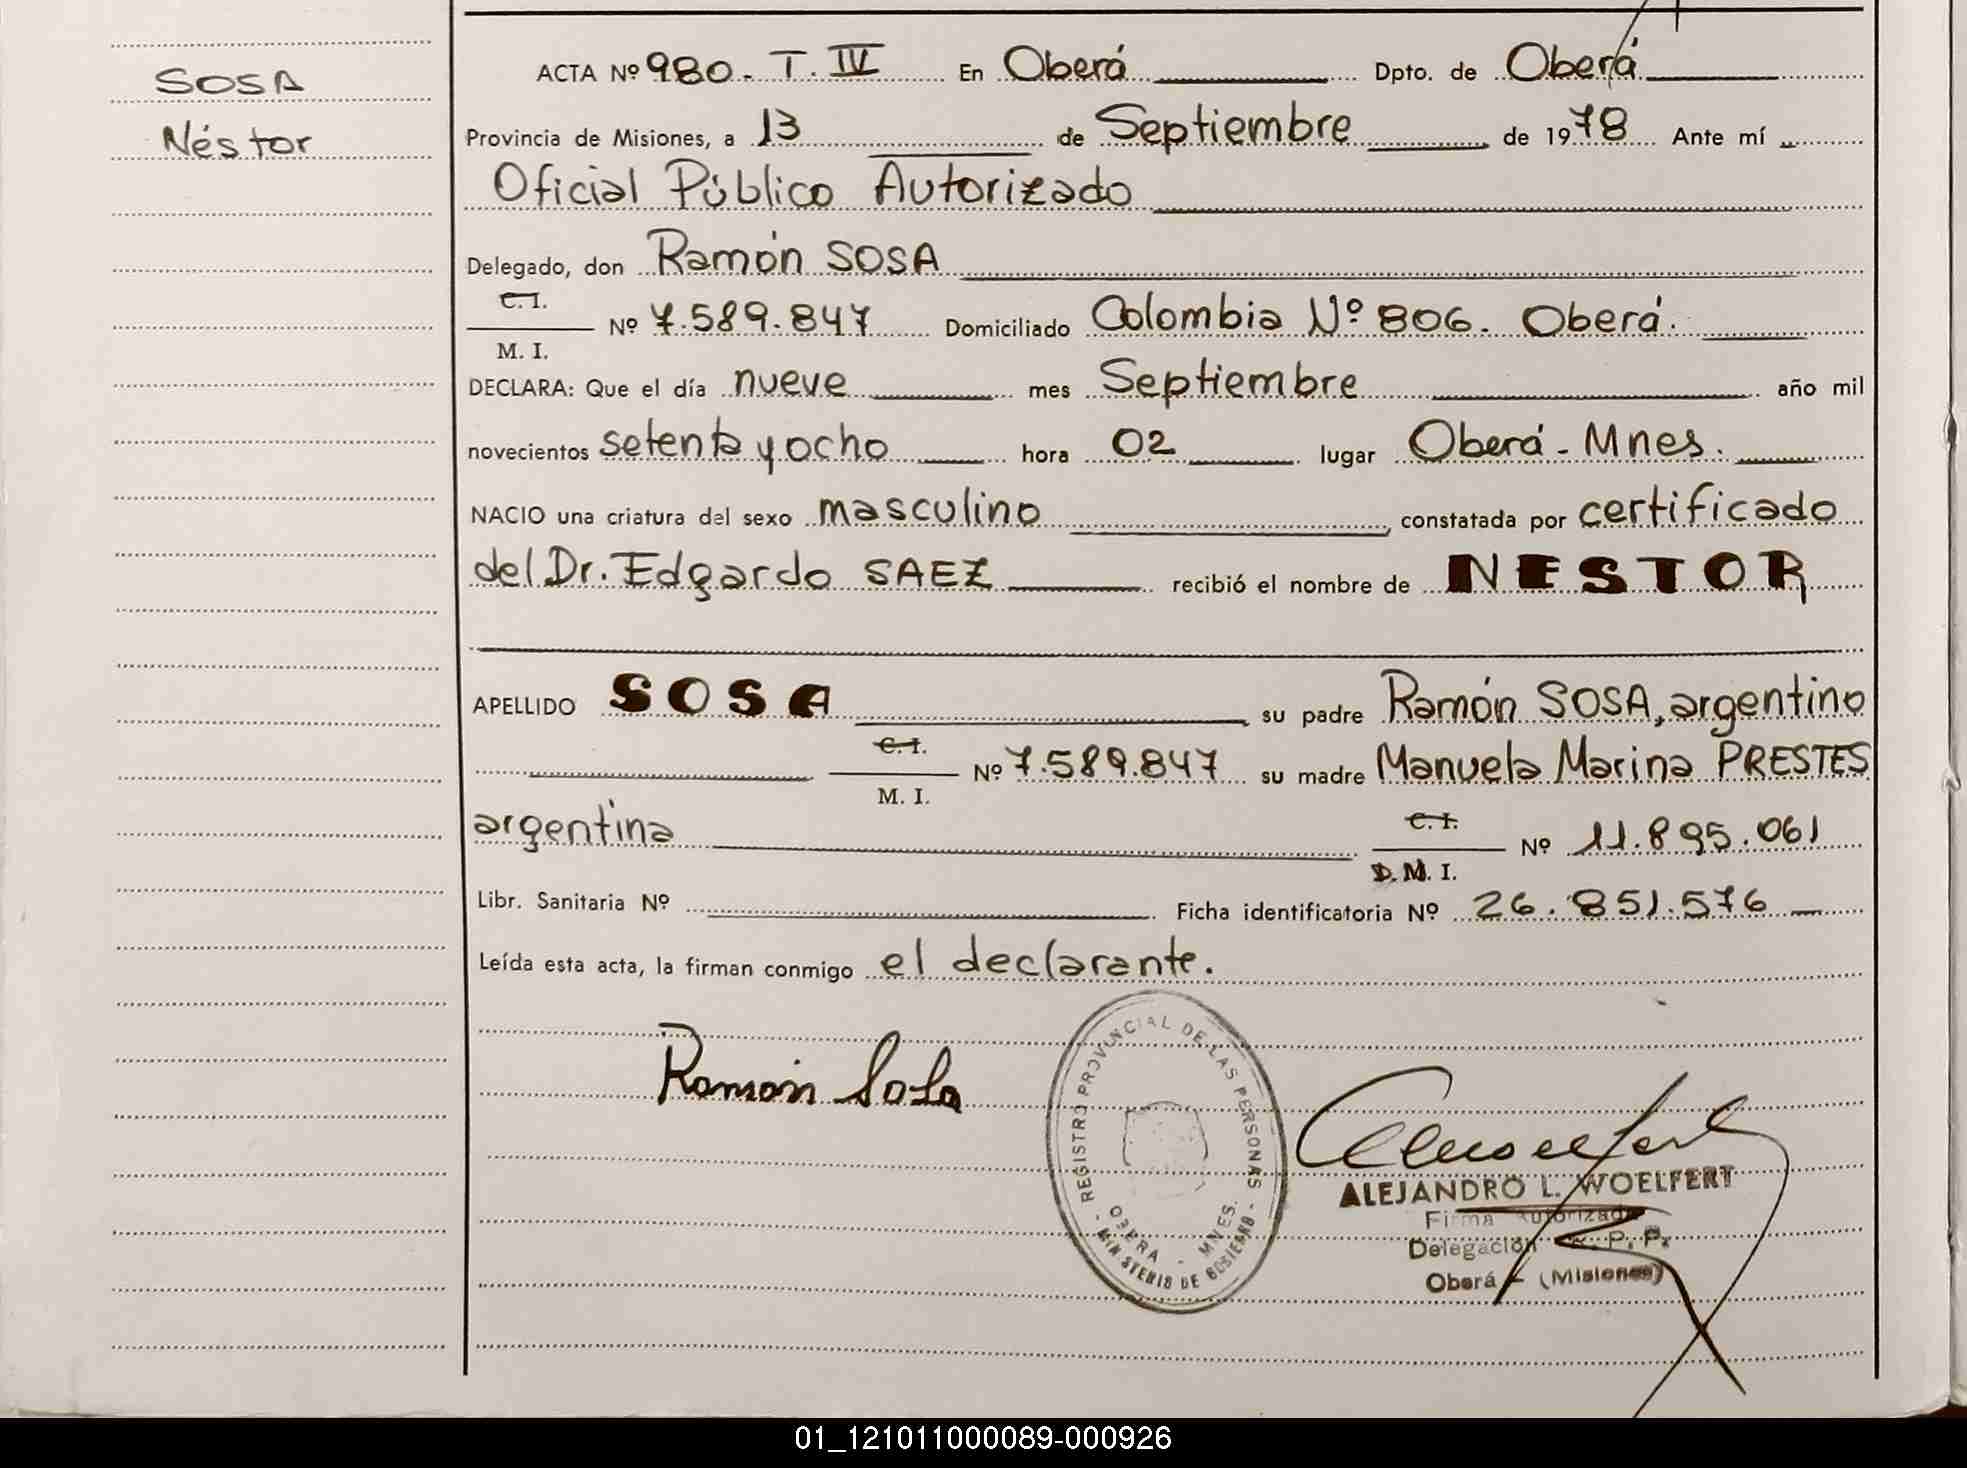 SOSA
Néstor
ACTA Nº 980. T. IV En Oberá Dpto. de Oberá
Provincia de Misiones, a 13 de Septiembre de 1978 Ante mí
Oficial Público Autorizado
Delegado, don Ramón SOSA
C. I.
Nº 7.589.847 Domiciliado Colombia Nº 806. Oberá.
M. I.
DECLARA: Que el día nueve mes Septiembre año mil
novecientos setenta y ocho hora 02 lugar Oberá - Mnes.
NACIO una criatura del sexo masculino, constatada por certificado
del Dr. Edgardo SAEZ recibió el nombre de NESTOR
APELLIDO SOSA su padre Ramón SOSA, argentino
C. I.
Nº 7.589.847 su madre Manuela Marina PRESTES
M. I.
argentina C. I. Nº 11.895.061
D. M. I.
Libr. Sanitaria Nº Ficha identificatoria Nº 26.851.576
Leída esta acta, la firman conmigo el declarante.
Ramón Sosa
REGISTRO PROVINCIAL DE LAS PERSONAS
OBERA - MNES.
MINISTERIO DE GOBIERNO
ALEJANDRO L. WOELFERT
Firma Autorizada
Delegación R. P. P.
Oberá - (Misiones)
01_121011000089-000926